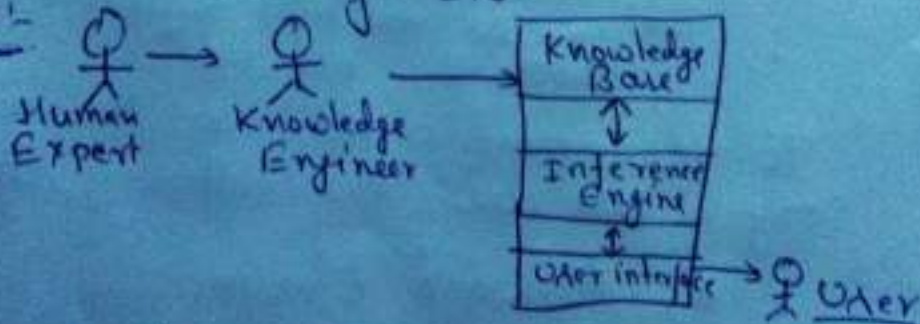 Human
Expert
Knowledge
Engineer
Knowledge
Base
Inference
Engine
User interface
User